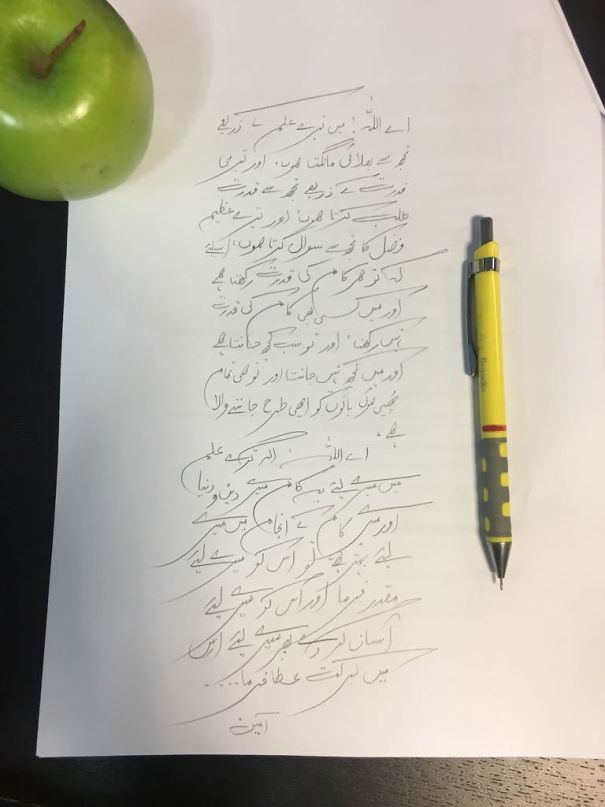 اے اللہ! میں تیرے علم کے ذریعے
تجھ سے بھلائی مانگتا ہوں، اور تیری
قدرت کے ذریعے تجھ سے قدرت
طلب کرتا ہوں، اور تیرے عظیم
فضل کا تجھ سے سوال کرتا ہوں، اسلئے
کہ تو ہر کام کی قدرت رکھتا ہے
اور میں کسی بھی کام کی قدرت
نہیں رکھتا، اور تو سب کچھ جانتا ہے
اور میں کچھ نہیں جانتا اور تو ہی تمام
چھپی ہوئی باتوں کو اچھی طرح جاننے والا
ہے،
اے اللہ! اگر تیرے علم
میں میرے لئے یہ کام میرے دین و دنیا
اور میرے کام کے انجام میں میرے
لئے بہتر ہے تو اس کو میرے لئے
مقدر فرما اور اس کو میرے لئے
آسان کر دے پھر میرے لئے اس
میں برکت عطا فرما....
آمین